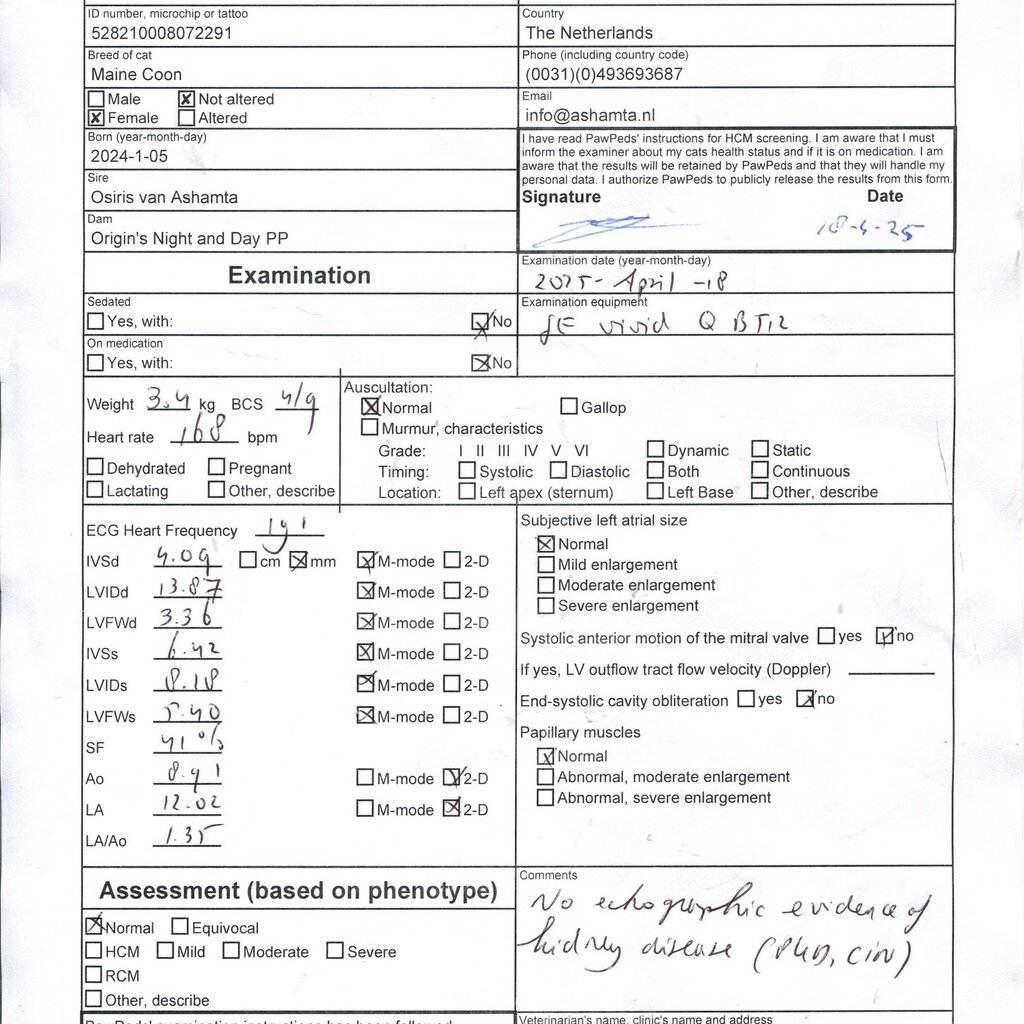 ID number, microchip or tattoo
528210008072291
Country
The Netherlands
Breed of cat
Maine Coon
Phone (including country code)
(0031)(0)493693687
Male
Not altered
Female
Altered
Email
info@ashamta.nl
Born (year-month-day)
2024-1-05
Sire
Osiris van Ashamta
Dam
Origin's Night and Day PP
I have read PawPeds' instructions for HCM screening. I am aware that I must
inform the examiner about my cats health status and if it is on medication. I am
aware that the results will be retained by PawPeds and that they will handle my
personal data. I authorize PawPeds to publicly release the results from this form.
Signature
Date
18-4-25
Examination
Examination date (year-month-day)
2025-April-18
Sedated
Yes, with:
No
Examination equipment
GE vivid Q BT12
On medication
Yes, with:
No
Weight 3.4 kg BCS 4/9
Heart rate 168 bpm
Dehydrated
Pregnant
Lactating
Other, describe
Auscultation:
Normal
Gallop
Murmur, characteristics
Grade: I II III IV V VI
Dynamic
Static
Timing: Systolic Diastolic
Both
Continuous
Location: Left apex (sternum)
Left Base
Other, describe
ECG Heart Frequency 191
IVSd 4.09 cm mm M-mode 2-D
LVIDd 13.87 M-mode 2-D
LVFWd 3.36 M-mode 2-D
IVSs 6.42 M-mode 2-D
LVIDs 8.18 M-mode 2-D
LVFWs 5.40 M-mode 2-D
SF 41%
Ao 8.91 M-mode 2-D
LA 12.02 M-mode 2-D
LA/Ao 1.35
Subjective left atrial size
Normal
Mild enlargement
Moderate enlargement
Severe enlargement
Systolic anterior motion of the mitral valve yes no
If yes, LV outflow tract flow velocity (Doppler)
End-systolic cavity obliteration yes no
Papillary muscles
Normal
Abnormal, moderate enlargement
Abnormal, severe enlargement
Assessment (based on phenotype)
Normal Equivocal
HCM Mild Moderate Severe
RCM
Other, describe
Comments
No echographic evidence of
kidney disease (PKD, CIN)
PawPeds' examination instructions has been followed
Veterinarian's name, clinic's name and address